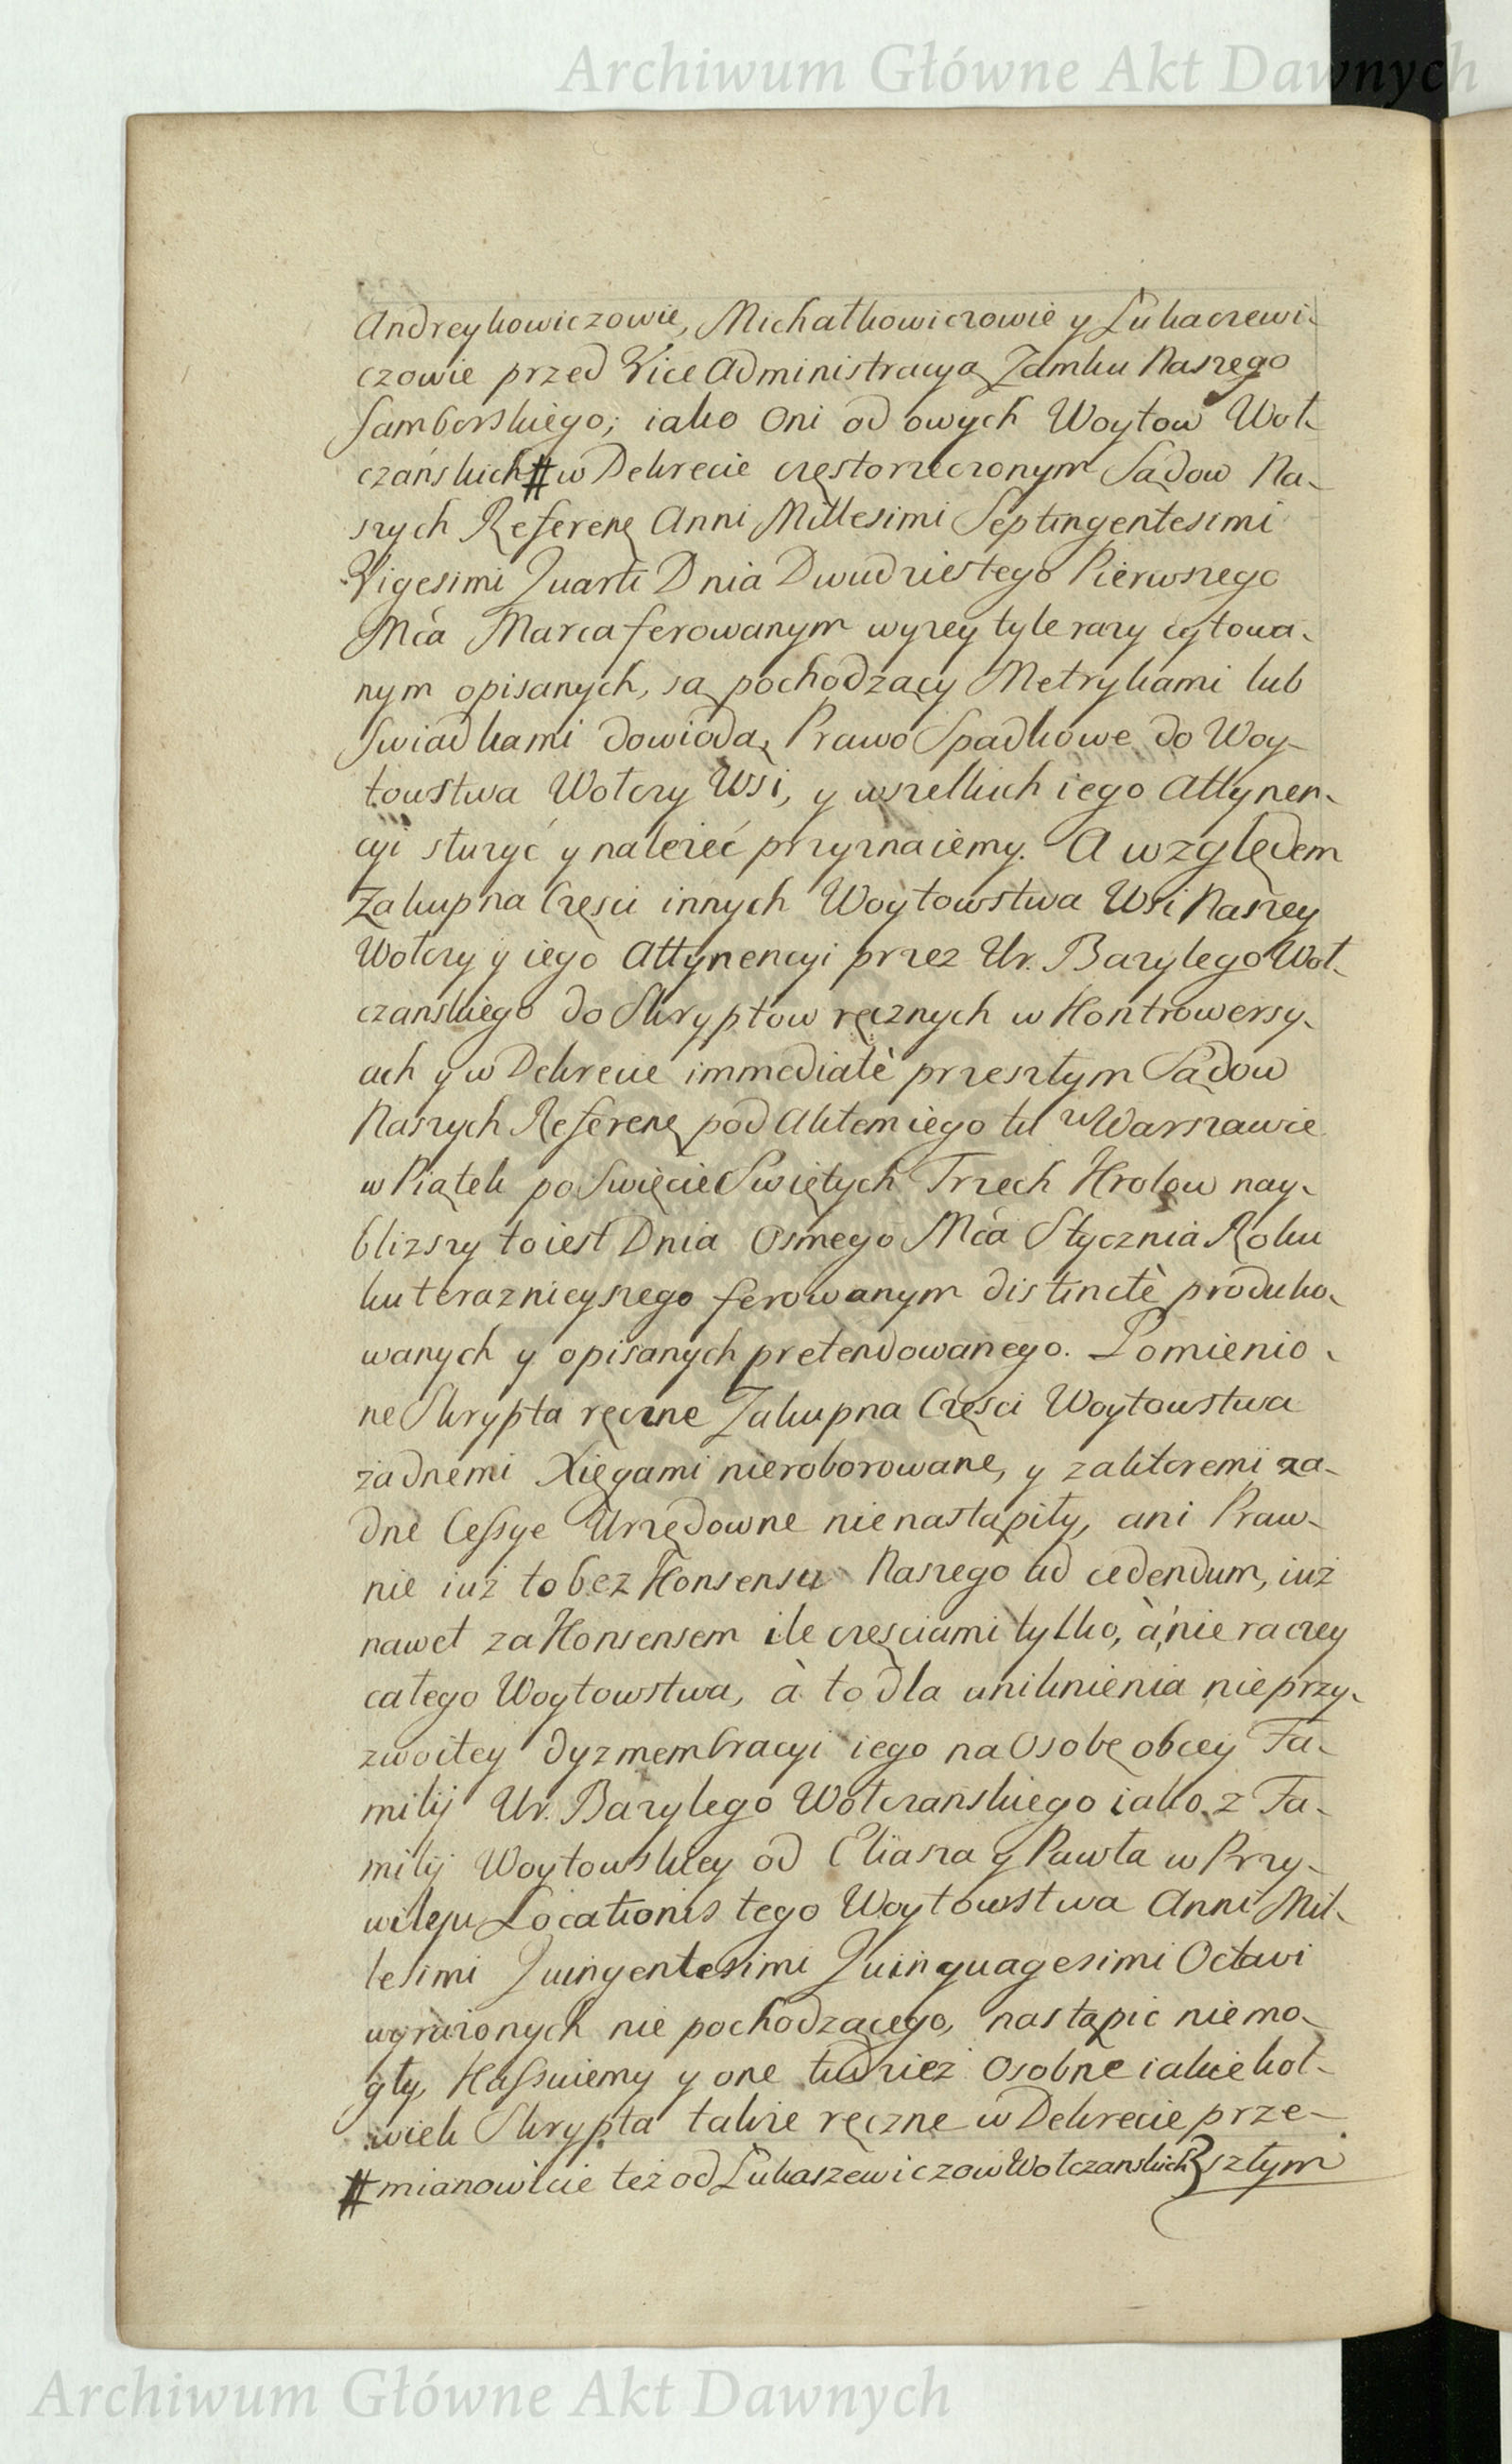 Archiwum Główne Akt Dawnych
Andreykowiczowie, Michałkowiczowie y Łukaczewi-
czowie przed Vice Administracyą Zamku Naszego
Samborskiego; iako oni od owych Woytow Woł-
czańskich # w Dekrecie częstorzeczonym Sądow Na-
szych Referen. Anni Millesimi Septingentesimi
Vigesimi Quarti Dnia Dwudziestego Pierwszego
Mća Marca ferowanym wyżey tyle razy cytowa-
nym opisanych, są pochodzący Metrykami lub
Swiadkami dowiodą, Prawo Spadkowe do Woy-
towstwa Wołczy Wsi, y wszelkich iego Attynen-
cyi służyć y należeć przyznaiemy. A względem
Zakupna Części innych Woytowstwa Wsi Naszey
Wołczy y iego Attynencyi przez Ur. Bazylego Woł-
czańskiego do Skryptow ręcznych w Kontrowersy-
ach y w Dekrecie immediatè przeszłym Sądow
Naszych Referen. pod Aktem iego tu w Warszawie
w Piątek po Swięcie Swiętych Trzech Krolow nay-
bliższy to iest Dnia Osmego Mća Stycznia Roku
ku teraznieyszego ferowanym distinctè produko-
wanych y opisanych pretendowanego. Pomienio-
ne Skrypta ręczne Zakupna Części Woytowstwa
żadnemi Xięgami nieroborowane, y za ktoremi ża-
dne Cessye Urzędowne nienastąpiły, ani Praw-
nie iuż to bez Konsensu Naszego ad cedendum, iuż
nawet za Konsensem ile częsciami tylko, à nie raczey
całego Woytowstwa, à to dla uniknienia nieprzy-
zwoitey dyzmembracyi iego na Osobę obcey Fa-
milij Ur. Bazylego Wołczańskiego iako z Fa-
milij Woytowskiey od Eliasza y Pawła w Przy-
wileju Locationis tego Woytowstwa Anni Mil-
lesimi Quingentesimi Quinquagesimi Octavi
wyrażonych nie pochodzącego, nastąpic niemo-
gły, Kassuiemy y one tudzież Osobne iakiekol-
wiek Skrypta takie ręczne w Dekrecie prze-
# mianowicie też od Łukaszewiczow Wołczanskich szłym
Archiwum Główne Akt Dawnych